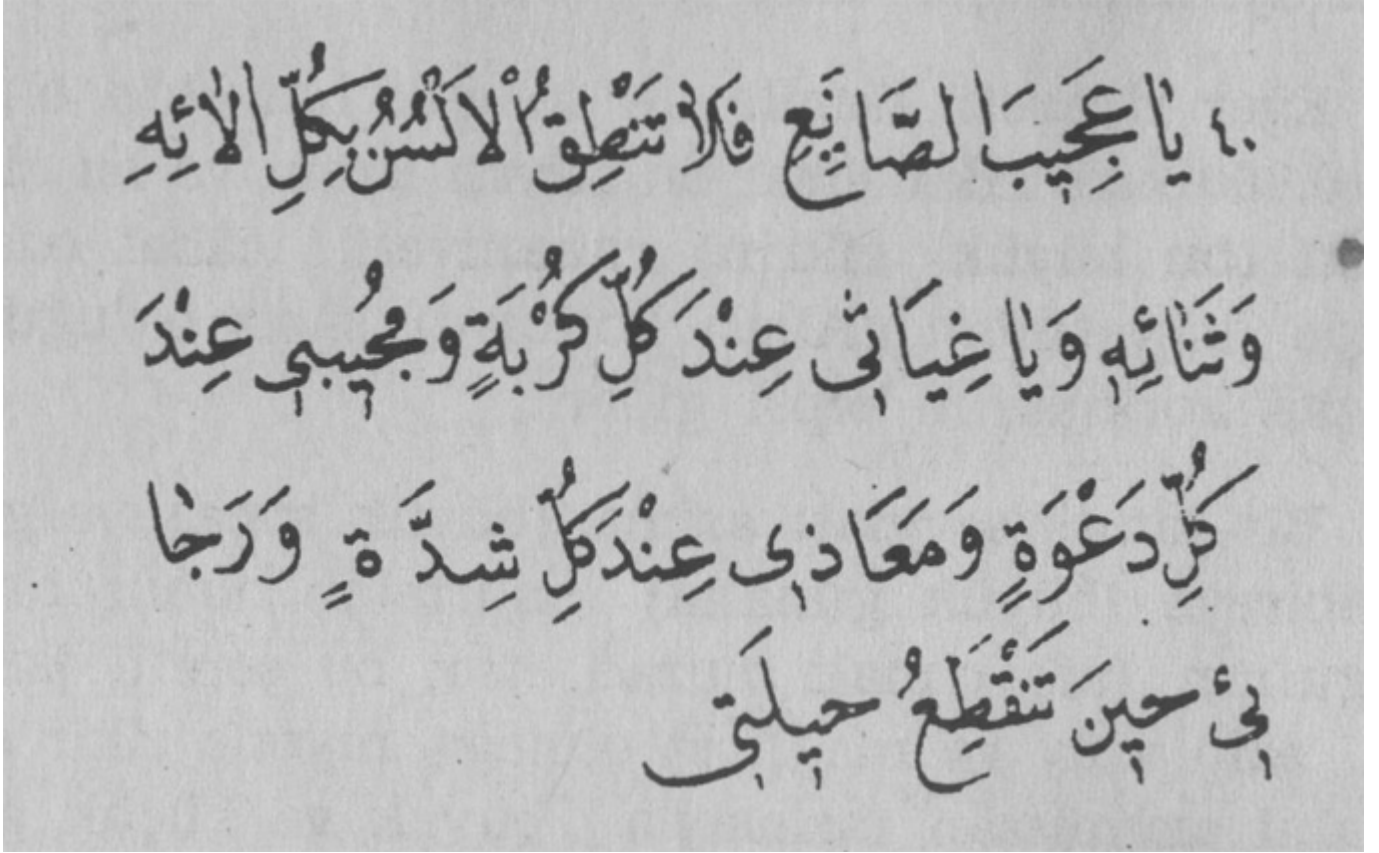 ٤٠ يَا عَجِيبَ الصَّنَايِعِ فَلَا تَنْطِقُ الْاَلْسُنُ بِكُلِّ اٰلَائِهِ
وَثَنَائِهِ وَيَا غِيَاثِي عِنْدَ كُلِّ كُرْبَةٍ وَمُجِيبِي عِنْدَ
كُلِّ دَعْوَةٍ وَمَعَاذِي عِنْدَ كُلِّ شِدَّةٍ وَرَجَا
ئِي حِينَ تَنْقَطِعُ حِيلَتِي